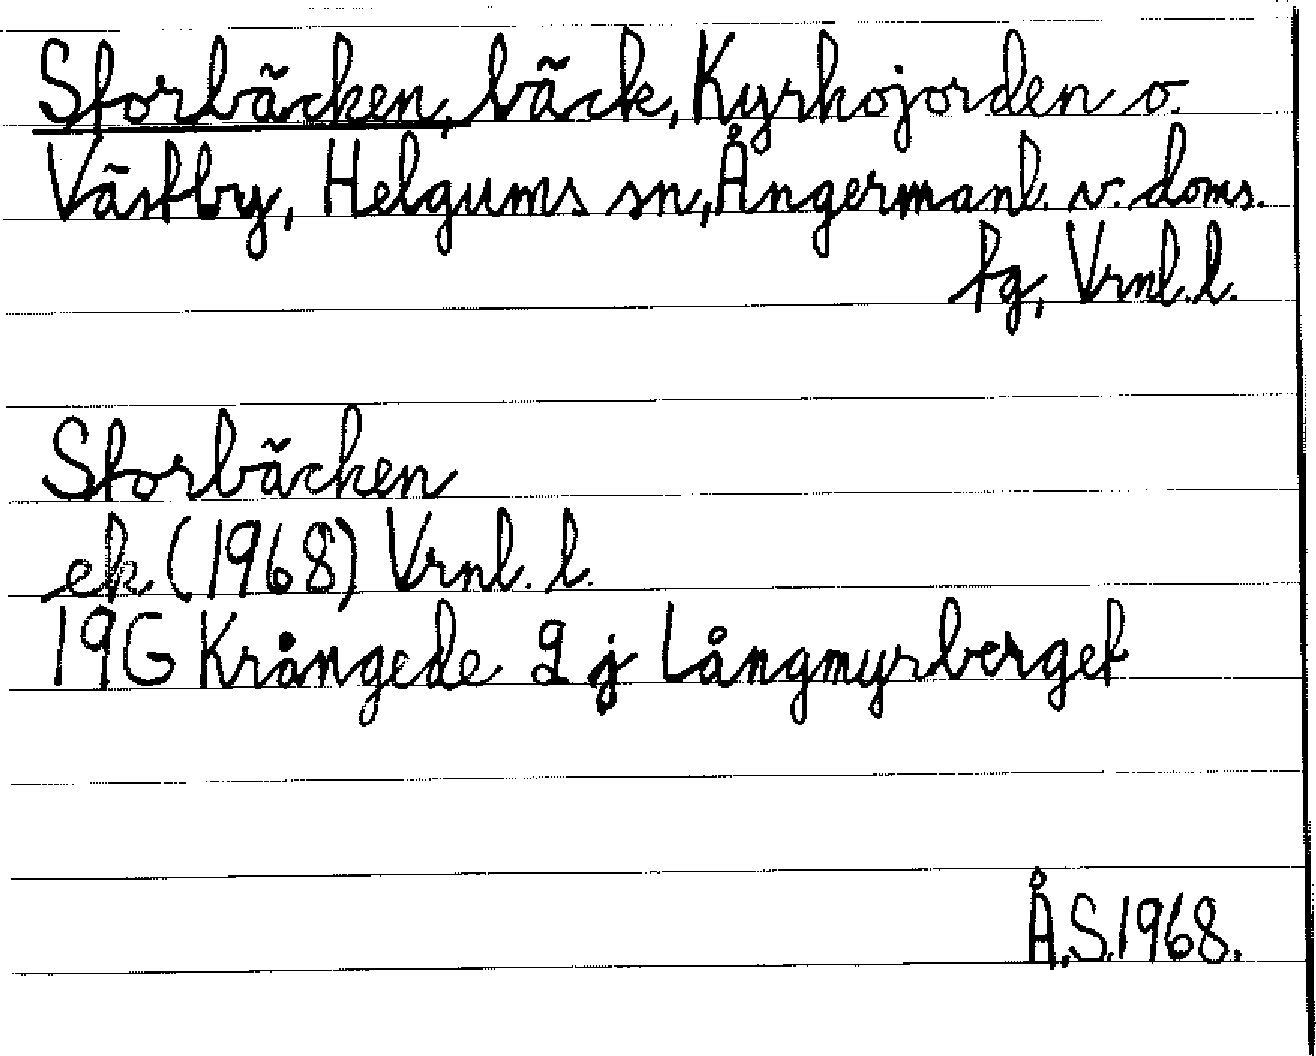 Storbäcken, bäck, Kyrkojorden o.
Västby, Helgums sn, Ångermanl. v. doms.
tg, Vrnl. l.
Storbäcken
ek (1968) Vrnl. l.
19G Krångede 9 j Långmyrberget
Å.S. 1968.